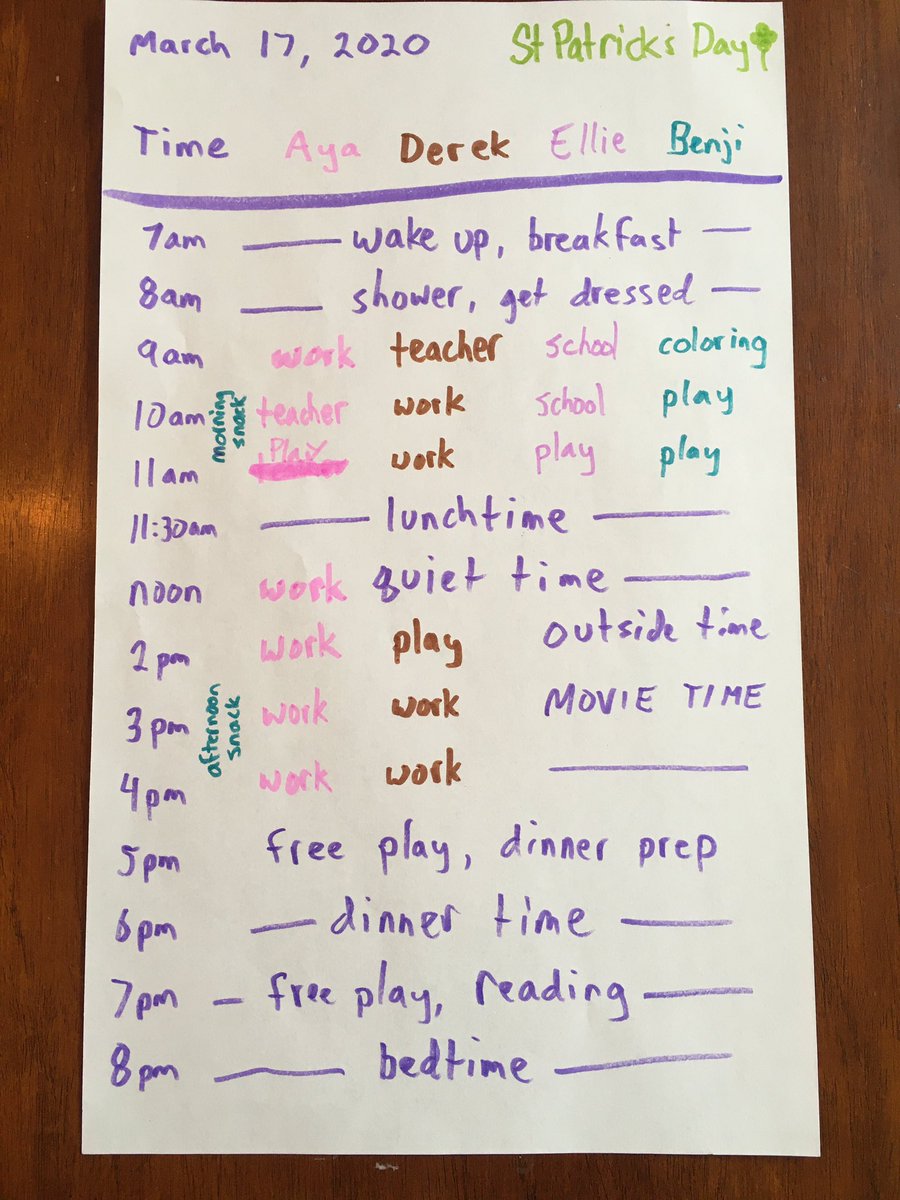 March 17, 2020 St Patrick's Day
Time Aya Derek Ellie Benji
7am wake up, breakfast
8am shower, get dressed
9am work teacher school coloring
10am teacher work school play
morning
snack
11am Play work play play
11:30am lunchtime
noon work quiet time
2pm work play outside time
3pm work work MOVIE TIME
afternoon
snack
4pm work work
5pm free play, dinner prep
6pm dinner time
7pm free play, reading
8pm bedtime